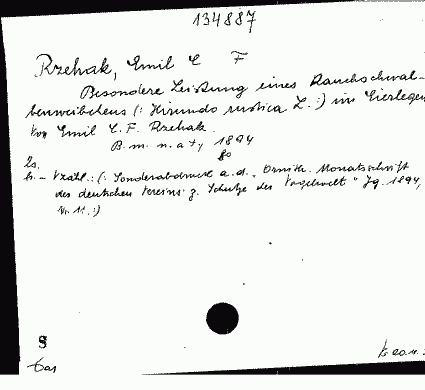 134887
Rzehak, Emil C F
Besondere Leistung eines Rauchschwal-
benweibchens (: Hirundo rustica L. :) im Eierlegen
Von Emil C. F. Rzehak.
B. m. n. a t y 1894
8o
2s.
h. - Vzáhl.: (: Sonderabdruck a. d. „Ornith. Monatsschrift
des deutschen Vereins z. Schutze der Vogelwelt" Jg. 1894,
Nr. 11. :)
S